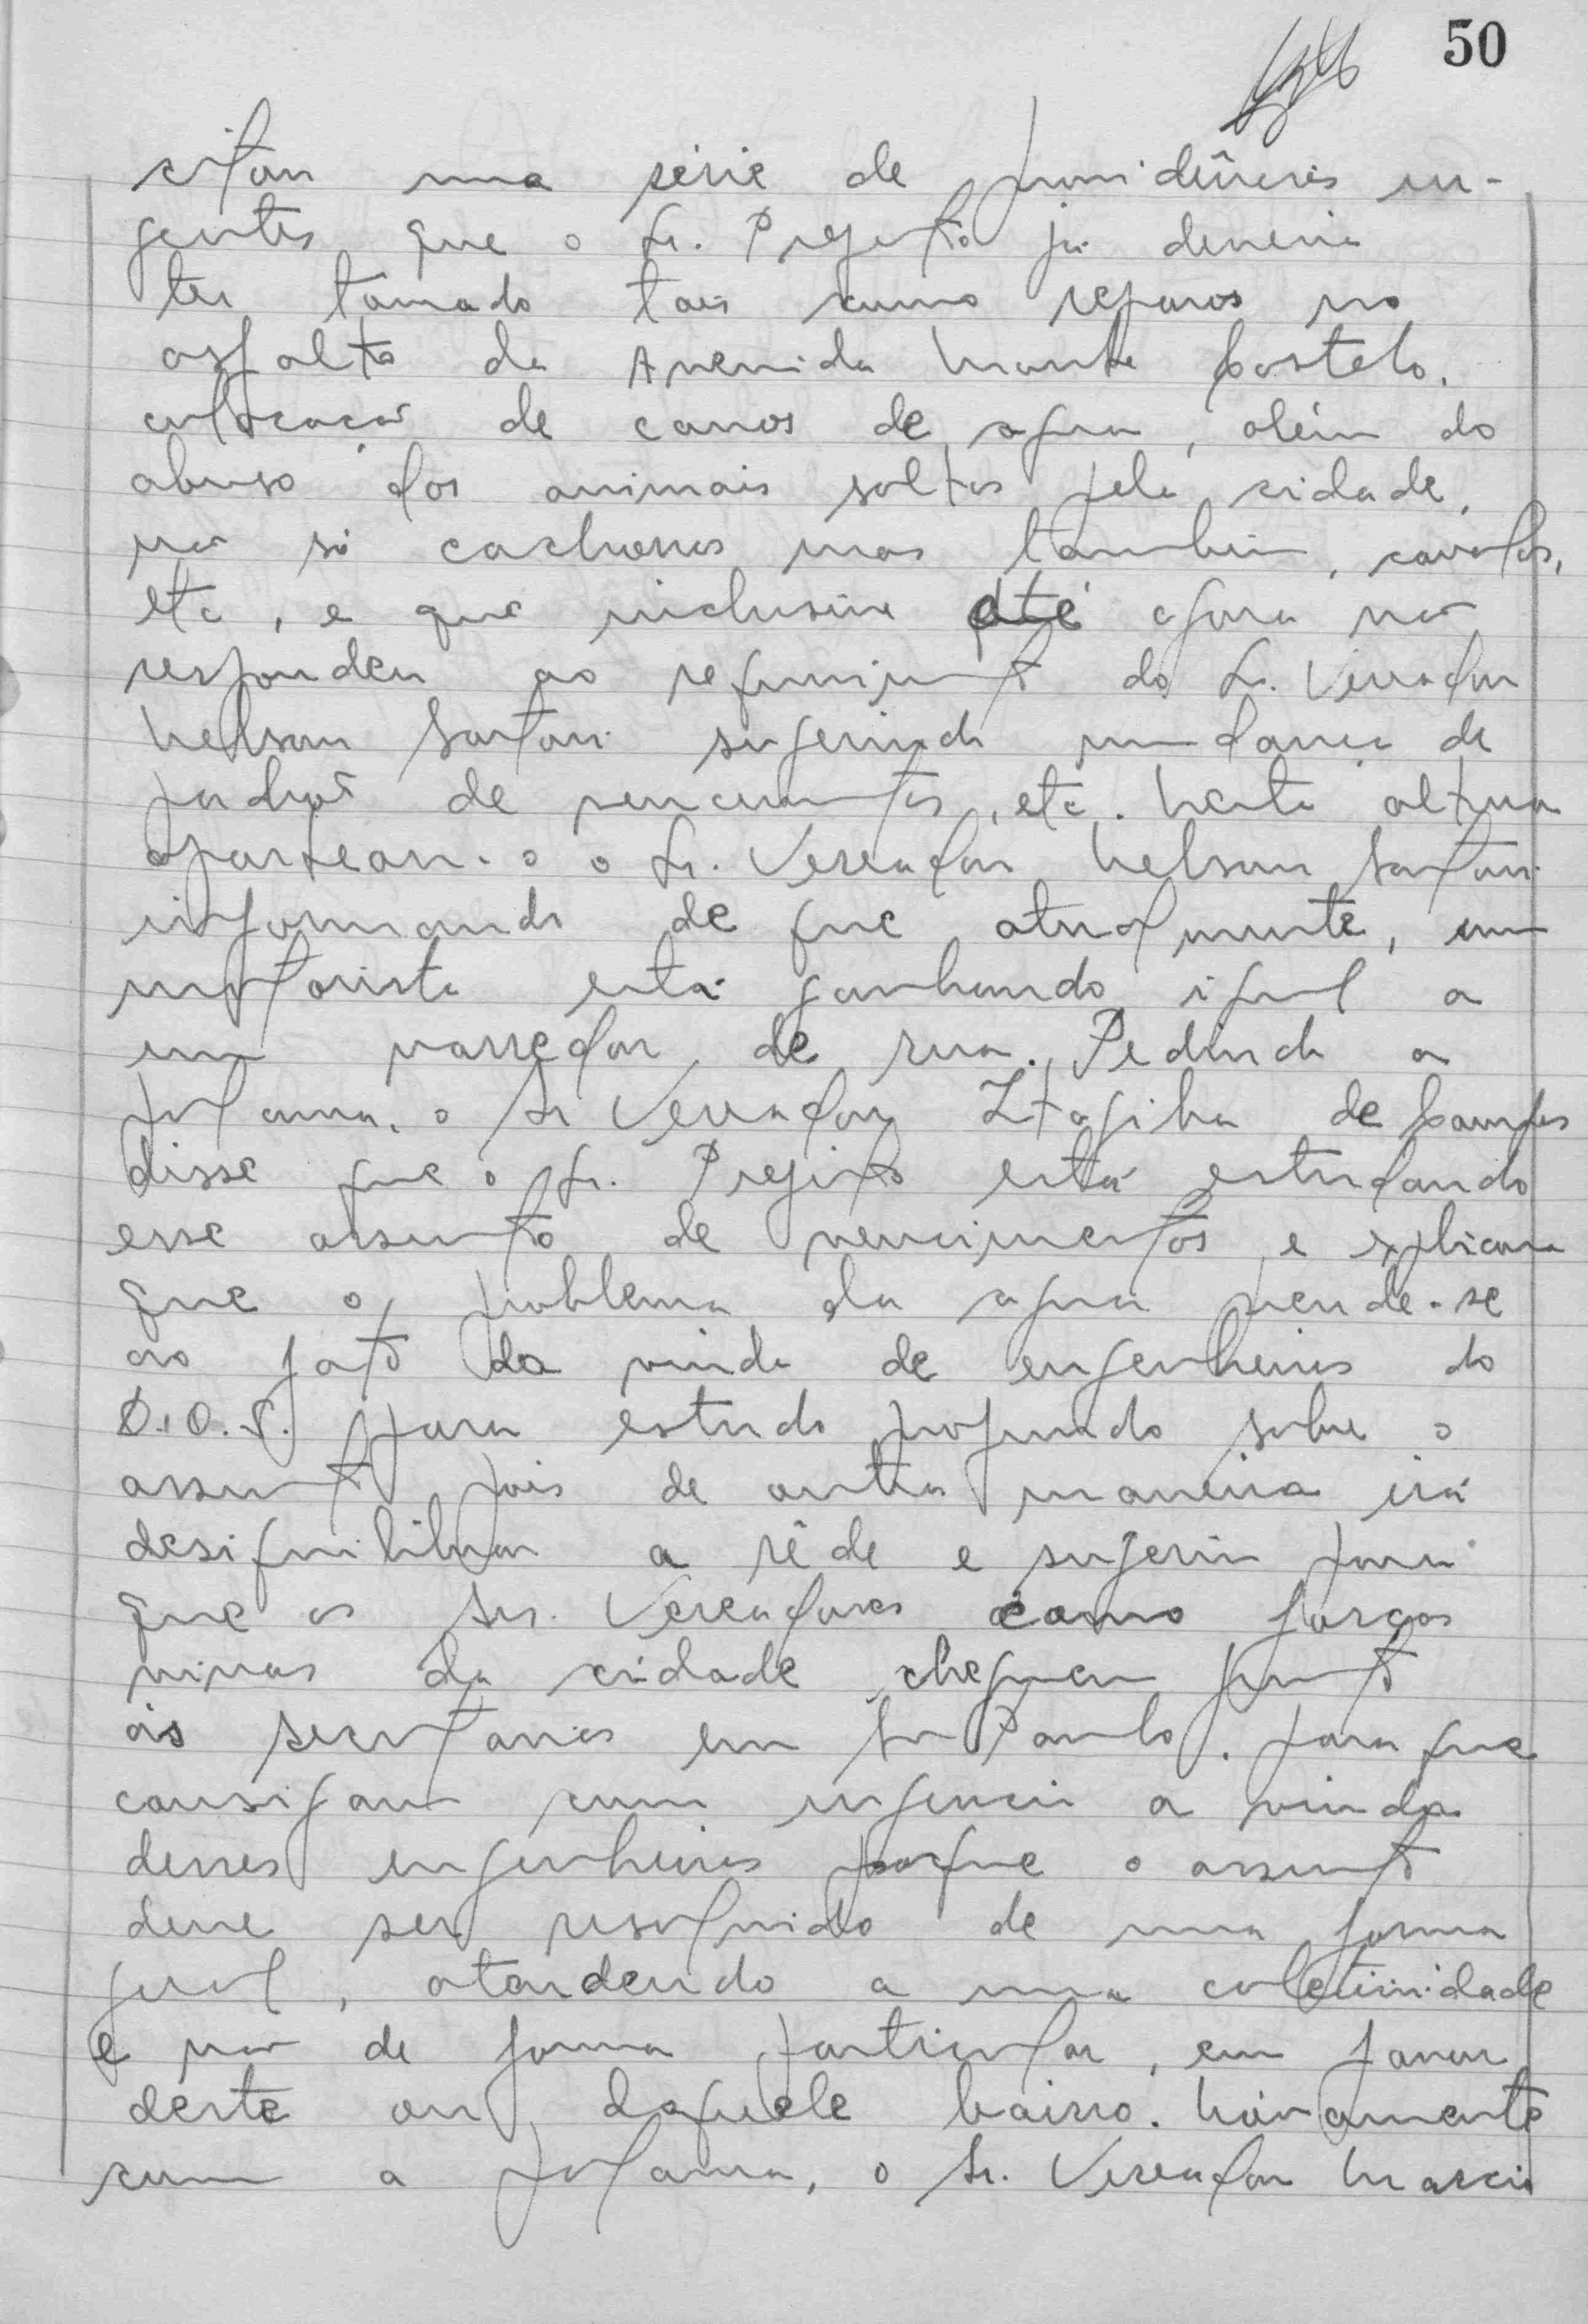 50
citou uma série de providências ur-
gentes que o Sr. Prefeito já deveria
ter tomado tais como reparos no
asfalto da Avenida Monte Castelo,
colocação de canos de agua, além do
abuso dos animais soltos pela cidade,
não só cachorros mas também, cavalos,
etc, e que inclusive até agora não
respondeu ao requerimento do Sr. Vereador
Nelson Sartori sugerindo mudança de
padrão de vencimentos, etc. Nesta altura
aparteou-o o Sr. Vereador Nelson Sartori
informando de que atualmente, um
motorista está ganhando igual a
um varredor de rua. Pedindo a
palavra, o Sr Vereador Itagiba de Campos
disse que o Sr. Prefeito está estudando
esse assunto de vencimentos e explicou
que o problema da agua prende-se
ao fato da vinda de engenheiros do
D.O.S. para estudo profundo sobre o
assunto pois de outra maneira irá
desiquilibrar a rêde e sugeriu para
que os Srs. Vereadores como forças
vivas da cidade cheguem junto
ás secretarias em São Paulo, para que
consigam com urgencia a vinda
desses engenheiros porque o assunto
deve ser resolvido de uma forma
geral, atendendo a uma coletividade
e não de forma particular, em favor
deste ou daquele bairro. Novamente
com a palavra, o Sr. Vereador Marcio